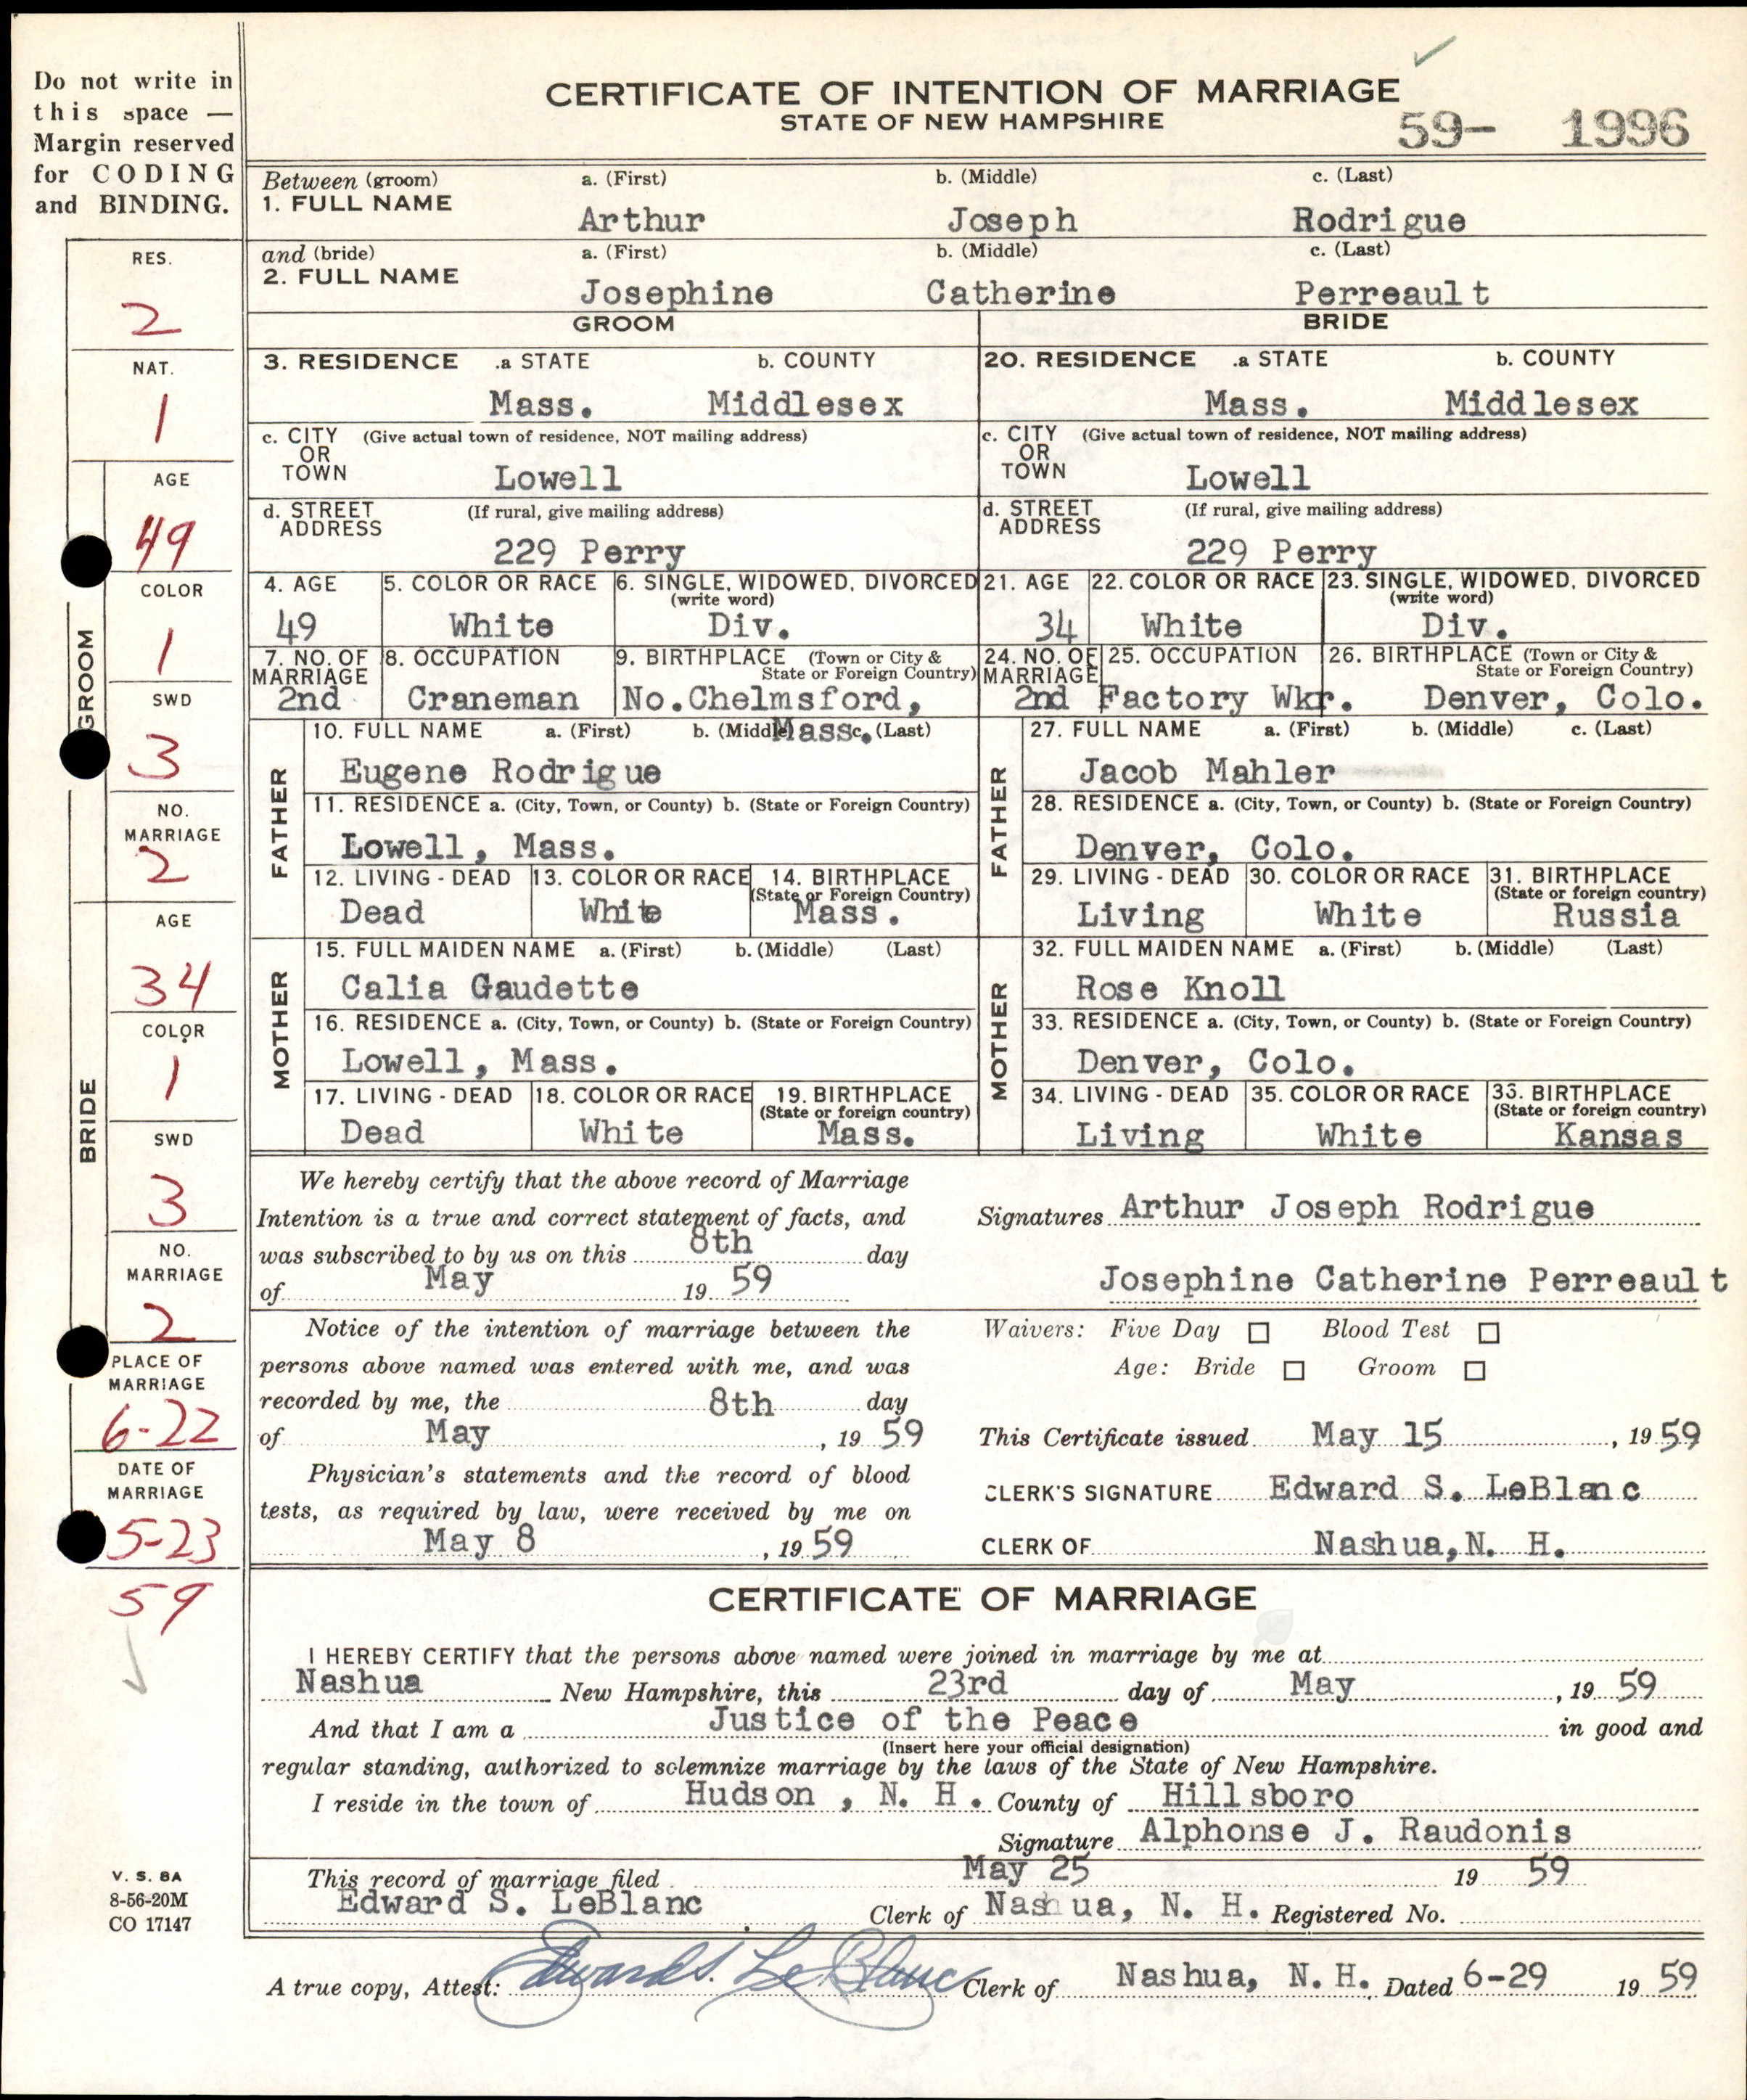 Do not write in
this space —
Margin reserved
for CODING
and BINDING.
CERTIFICATE OF INTENTION OF MARRIAGE
STATE OF NEW HAMPSHIRE
59- 1996
Between (groom) a. (First) b. (Middle) c. (Last)
1. FULL NAME
Arthur Joseph Rodrigue
and (bride) a. (First) b. (Middle) c. (Last)
2. FULL NAME
Josephine Catherine Perreault
GROOM BRIDE
3. RESIDENCE .a STATE b. COUNTY 20. RESIDENCE .a STATE b. COUNTY
Mass. Middlesex Mass. Middlesex
c. CITY (Give actual town of residence, NOT mailing address) c. CITY (Give actual town of residence, NOT mailing address)
OR OR
TOWN Lowell TOWN Lowell
d. STREET (If rural, give mailing address) d. STREET (If rural, give mailing address)
ADDRESS ADDRESS
229 Perry 229 Perry
4. AGE 5. COLOR OR RACE 6. SINGLE, WIDOWED, DIVORCED 21. AGE 22. COLOR OR RACE 23. SINGLE, WIDOWED, DIVORCED
(write word) (write word)
49 White Div. 34 White Div.
7. NO. OF 8. OCCUPATION 9. BIRTHPLACE (Town or City & 24. NO. OF 25. OCCUPATION 26. BIRTHPLACE (Town or City &
MARRIAGE State or Foreign Country) MARRIAGE State or Foreign Country)
2nd Craneman No.Chelmsford, 2nd Factory Wkr. Denver, Colo.
10. FULL NAME a. (First) b. (Middle) Mass. c. (Last) 27. FULL NAME a. (First) b. (Middle) c. (Last)
FATHER Eugene Rodrigue FATHER Jacob Mahler
11. RESIDENCE a. (City, Town, or County) b. (State or Foreign Country) 28. RESIDENCE a. (City, Town, or County) b. (State or Foreign Country)
Lowell, Mass. Denver, Colo.
12. LIVING - DEAD 13. COLOR OR RACE 14. BIRTHPLACE 29. LIVING - DEAD 30. COLOR OR RACE 31. BIRTHPLACE
(State or Foreign Country) (State or foreign country)
Dead White Mass. Living White Russia
15. FULL MAIDEN NAME a. (First) b. (Middle) (Last) 32. FULL MAIDEN NAME a. (First) b. (Middle) (Last)
MOTHER Calia Gaudette MOTHER Rose Knoll
16. RESIDENCE a. (City, Town, or County) b. (State or Foreign Country) 33. RESIDENCE a. (City, Town, or County) b. (State or Foreign Country)
Lowell, Mass. Denver, Colo.
17. LIVING - DEAD 18. COLOR OR RACE 19. BIRTHPLACE 34. LIVING - DEAD 35. COLOR OR RACE 33. BIRTHPLACE
(State or foreign country) (State or foreign country)
Dead White Mass. Living White Kansas
We hereby certify that the above record of Marriage
Intention is a true and correct statement of facts, and
was subscribed to by us on this 8th day
of May 19 59
Signatures Arthur Joseph Rodrigue
Josephine Catherine Perreault
Notice of the intention of marriage between the
persons above named was entered with me, and was
recorded by me, the 8th day
of May , 19 59
Physician's statements and the record of blood
tests, as required by law, were received by me on
May 8 , 19 59
Waivers: Five Day Blood Test
Age: Bride Groom
This Certificate issued May 15 , 19 59
CLERK'S SIGNATURE Edward S. LeBlanc
CLERK OF Nashua, N. H.
CERTIFICATE OF MARRIAGE
I HEREBY CERTIFY that the persons above named were joined in marriage by me at
Nashua New Hampshire, this 23rd day of May , 19 59
And that I am a Justice of the Peace in good and
(Insert here your official designation)
regular standing, authorized to solemnize marriage by the laws of the State of New Hampshire.
I reside in the town of Hudson , N. H. County of Hillsboro
Signature Alphonse J. Raudonis
This record of marriage filed May 25 19 59
Edward S. LeBlanc Clerk of Nashua, N. H. Registered No.
A true copy, Attest: Edward S. LeBlanc Clerk of Nashua, N. H. Dated 6-29 19 59
RES.
2
NAT.
1
GROOM
AGE
49
COLOR
1
SWD
3
NO.
MARRIAGE
2
BRIDE
AGE
34
COLOR
1
SWD
3
NO.
MARRIAGE
2
PLACE OF
MARRIAGE
6-22
DATE OF
MARRIAGE
5-23
59
V. S. 8A
8-56-20M
CO 17147